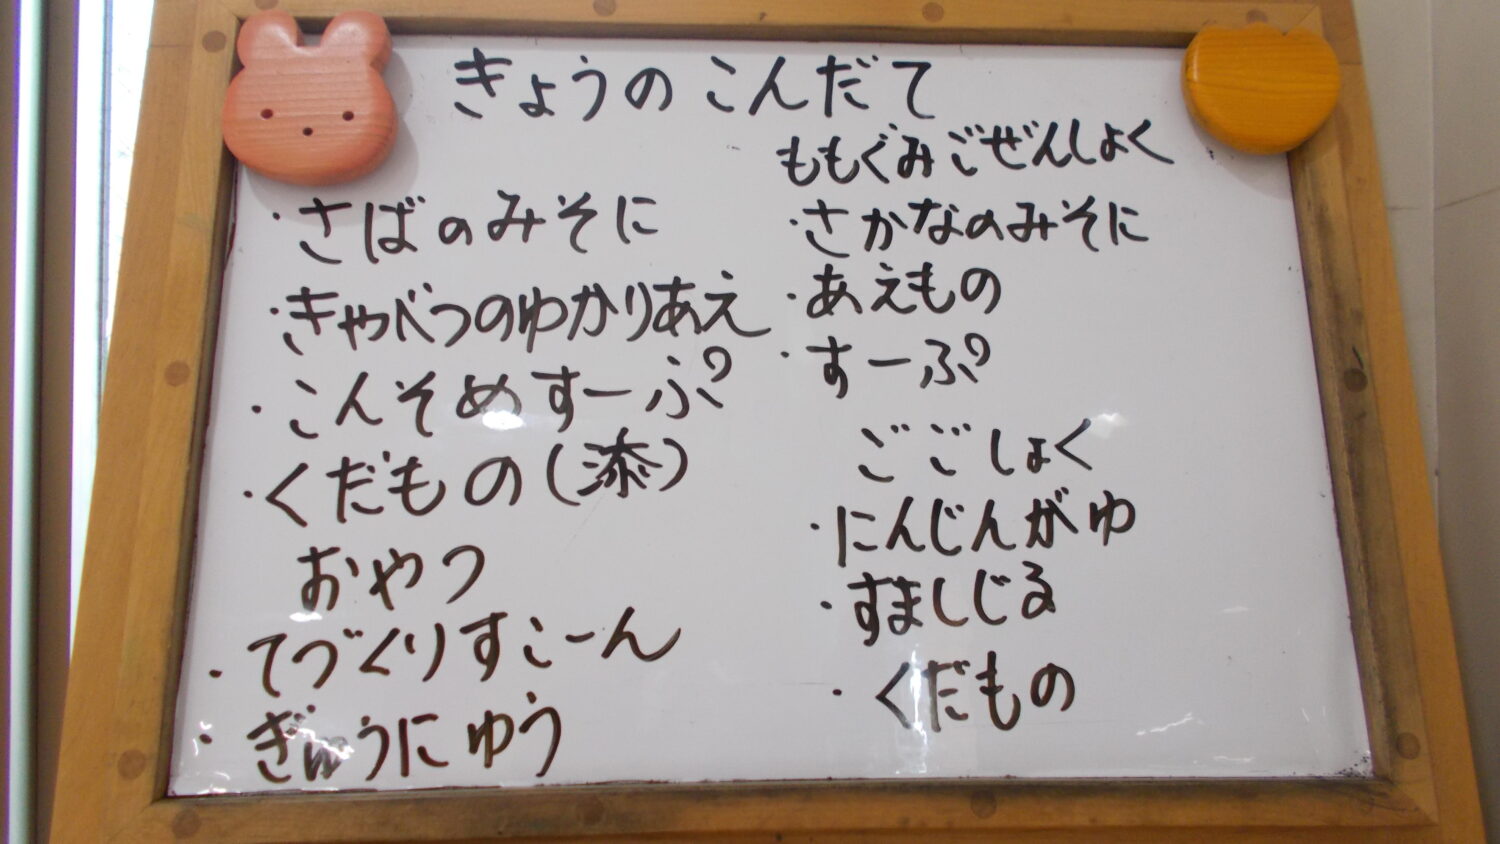 きょうのこんだて
・さばのみそに
・きゃべつのゆかりあえ
・こんそめすーぷ
・くだもの(添)
おやつ
・てづくりすこーん
・ぎゅうにゅう
ももぐみごぜんしょく
・さかなのみそに
・あえもの
・すーぷ
ごごしょく
・にんじんがゆ
・すましじる
・くだもの